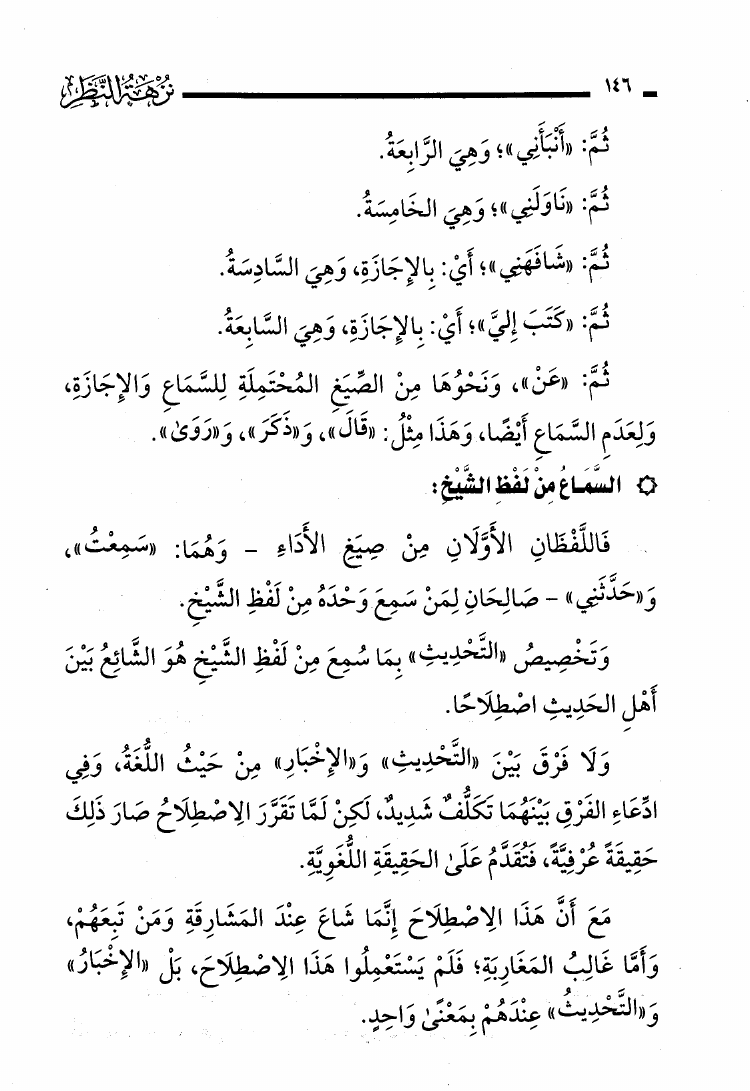 ١٤٦ نُزْهَةُ النَّظَرِ
ثُمَّ: «أَنْبَأَنِي»؛ وَهِيَ الرَّابِعَةُ.
ثُمَّ: «نَاوَلَنِي»؛ وَهِيَ الخَامِسَةُ.
ثُمَّ: «شَافَهَنِي»؛ أَيْ: بِالإِجَازَةِ، وَهِيَ السَّادِسَةُ.
ثُمَّ: «كَتَبَ إِلَيَّ»؛ أَيْ: بِالإِجَازَةِ، وَهِيَ السَّابِعَةُ.
ثُمَّ: «عَنْ»، وَنَحْوُهَا مِنْ الصِّيَغِ المُحْتَمِلَةِ لِلسَّمَاعِ وَالإِجَازَةِ،
وَلِعَدَمِ السَّمَاعِ أَيْضًا، وَهَذَا مِثْلُ: «قَالَ»، وَ«ذَكَرَ»، وَ«رَوَىٰ».
۞ السَّمَاعُ مِنْ لَفْظِ الشَّيْخِ:
فَاللَّفْظَانِ الأَوَّلَانِ مِنْ صِيَغِ الأَدَاءِ - وَهُمَا: «سَمِعْتُ»،
وَ«حَدَّثَنِي» - صَالِحَانِ لِمَنْ سَمِعَ وَحْدَهُ مِنْ لَفْظِ الشَّيْخِ.
وَتَخْصِيصُ «التَّحْدِيثِ» بِمَا سُمِعَ مِنْ لَفْظِ الشَّيْخِ هُوَ الشَّائِعُ بَيْنَ
أَهْلِ الحَدِيثِ اصْطِلَاحًا.
وَلَا فَرْقَ بَيْنَ «التَّحْدِيثِ» وَ«الإِخْبَارِ» مِنْ حَيْثُ اللُّغَةُ، وَفِي
ادِّعَاءِ الفَرْقِ بَيْنَهُمَا تَكَلُّفٌ شَدِيدٌ، لَكِنْ لَمَّا تَقَرَّرَ الِاصْطِلَاحُ صَارَ ذَلِكَ
حَقِيقَةً عُرْفِيَّةً، فَتُقَدَّمُ عَلَىٰ الحَقِيقَةِ اللُّغَوِيَّةِ.
مَعَ أَنَّ هَذَا الِاصْطِلَاحَ إِنَّمَا شَاعَ عِنْدَ المَشَارِقَةِ وَمَنْ تَبِعَهُمْ،
وَأَمَّا غَالِبُ المَغَارِبَةِ؛ فَلَمْ يَسْتَعْمِلُوا هَذَا الِاصْطِلَاحَ، بَلْ «الإِخْبَارُ»
وَ«التَّحْدِيثُ» عِنْدَهُمْ بِمَعْنًىٰ وَاحِدٍ.